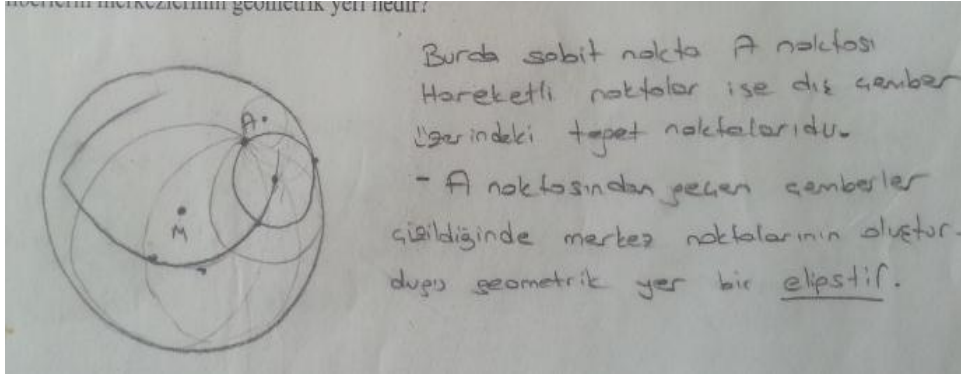 nberlerin merkezlerinin geometrik yeri nedir?
A
M
Burda sabit nokta A noktası
Hareketli noktalar ise dış çember
üzerindeki teğet noktalarıdır.
- A noktasından geçen çemberler
çizildiğinde merkez noktalarının oluştur-
duğu geometrik yer bir elipstir.